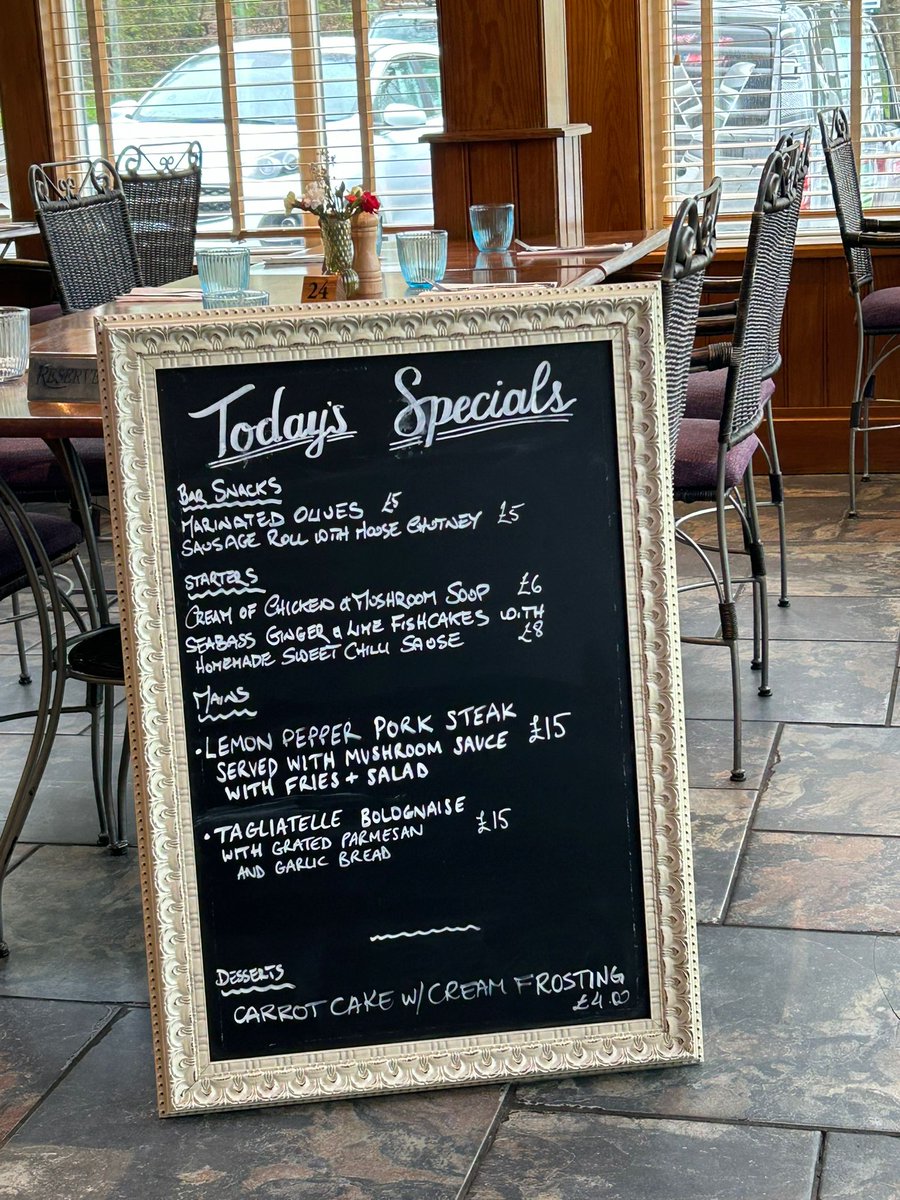 24
RESERVE
Today's Specials
BAR SNACKS
MARINATED OLIVES £5
SAUSAGE ROLL WITH HOUSE CHUTNEY £5
STARTERS
CREAM OF CHICKEN & MUSHROOM SOUP £6
SEABASS GINGER & LIME FISHCAKES WITH
HOMEMADE SWEET CHILLI SAUSE £8
MAINS
• LEMON PEPPER PORK STEAK
SERVED WITH MUSHROOM SAUCE £15
WITH FRIES + SALAD
• TAGLIATELLE BOLOGNAISE
WITH GRATED PARMESAN £15
AND GARLIC BREAD
DESSERTS
CARROT CAKE W/ CREAM FROSTING
£4.00